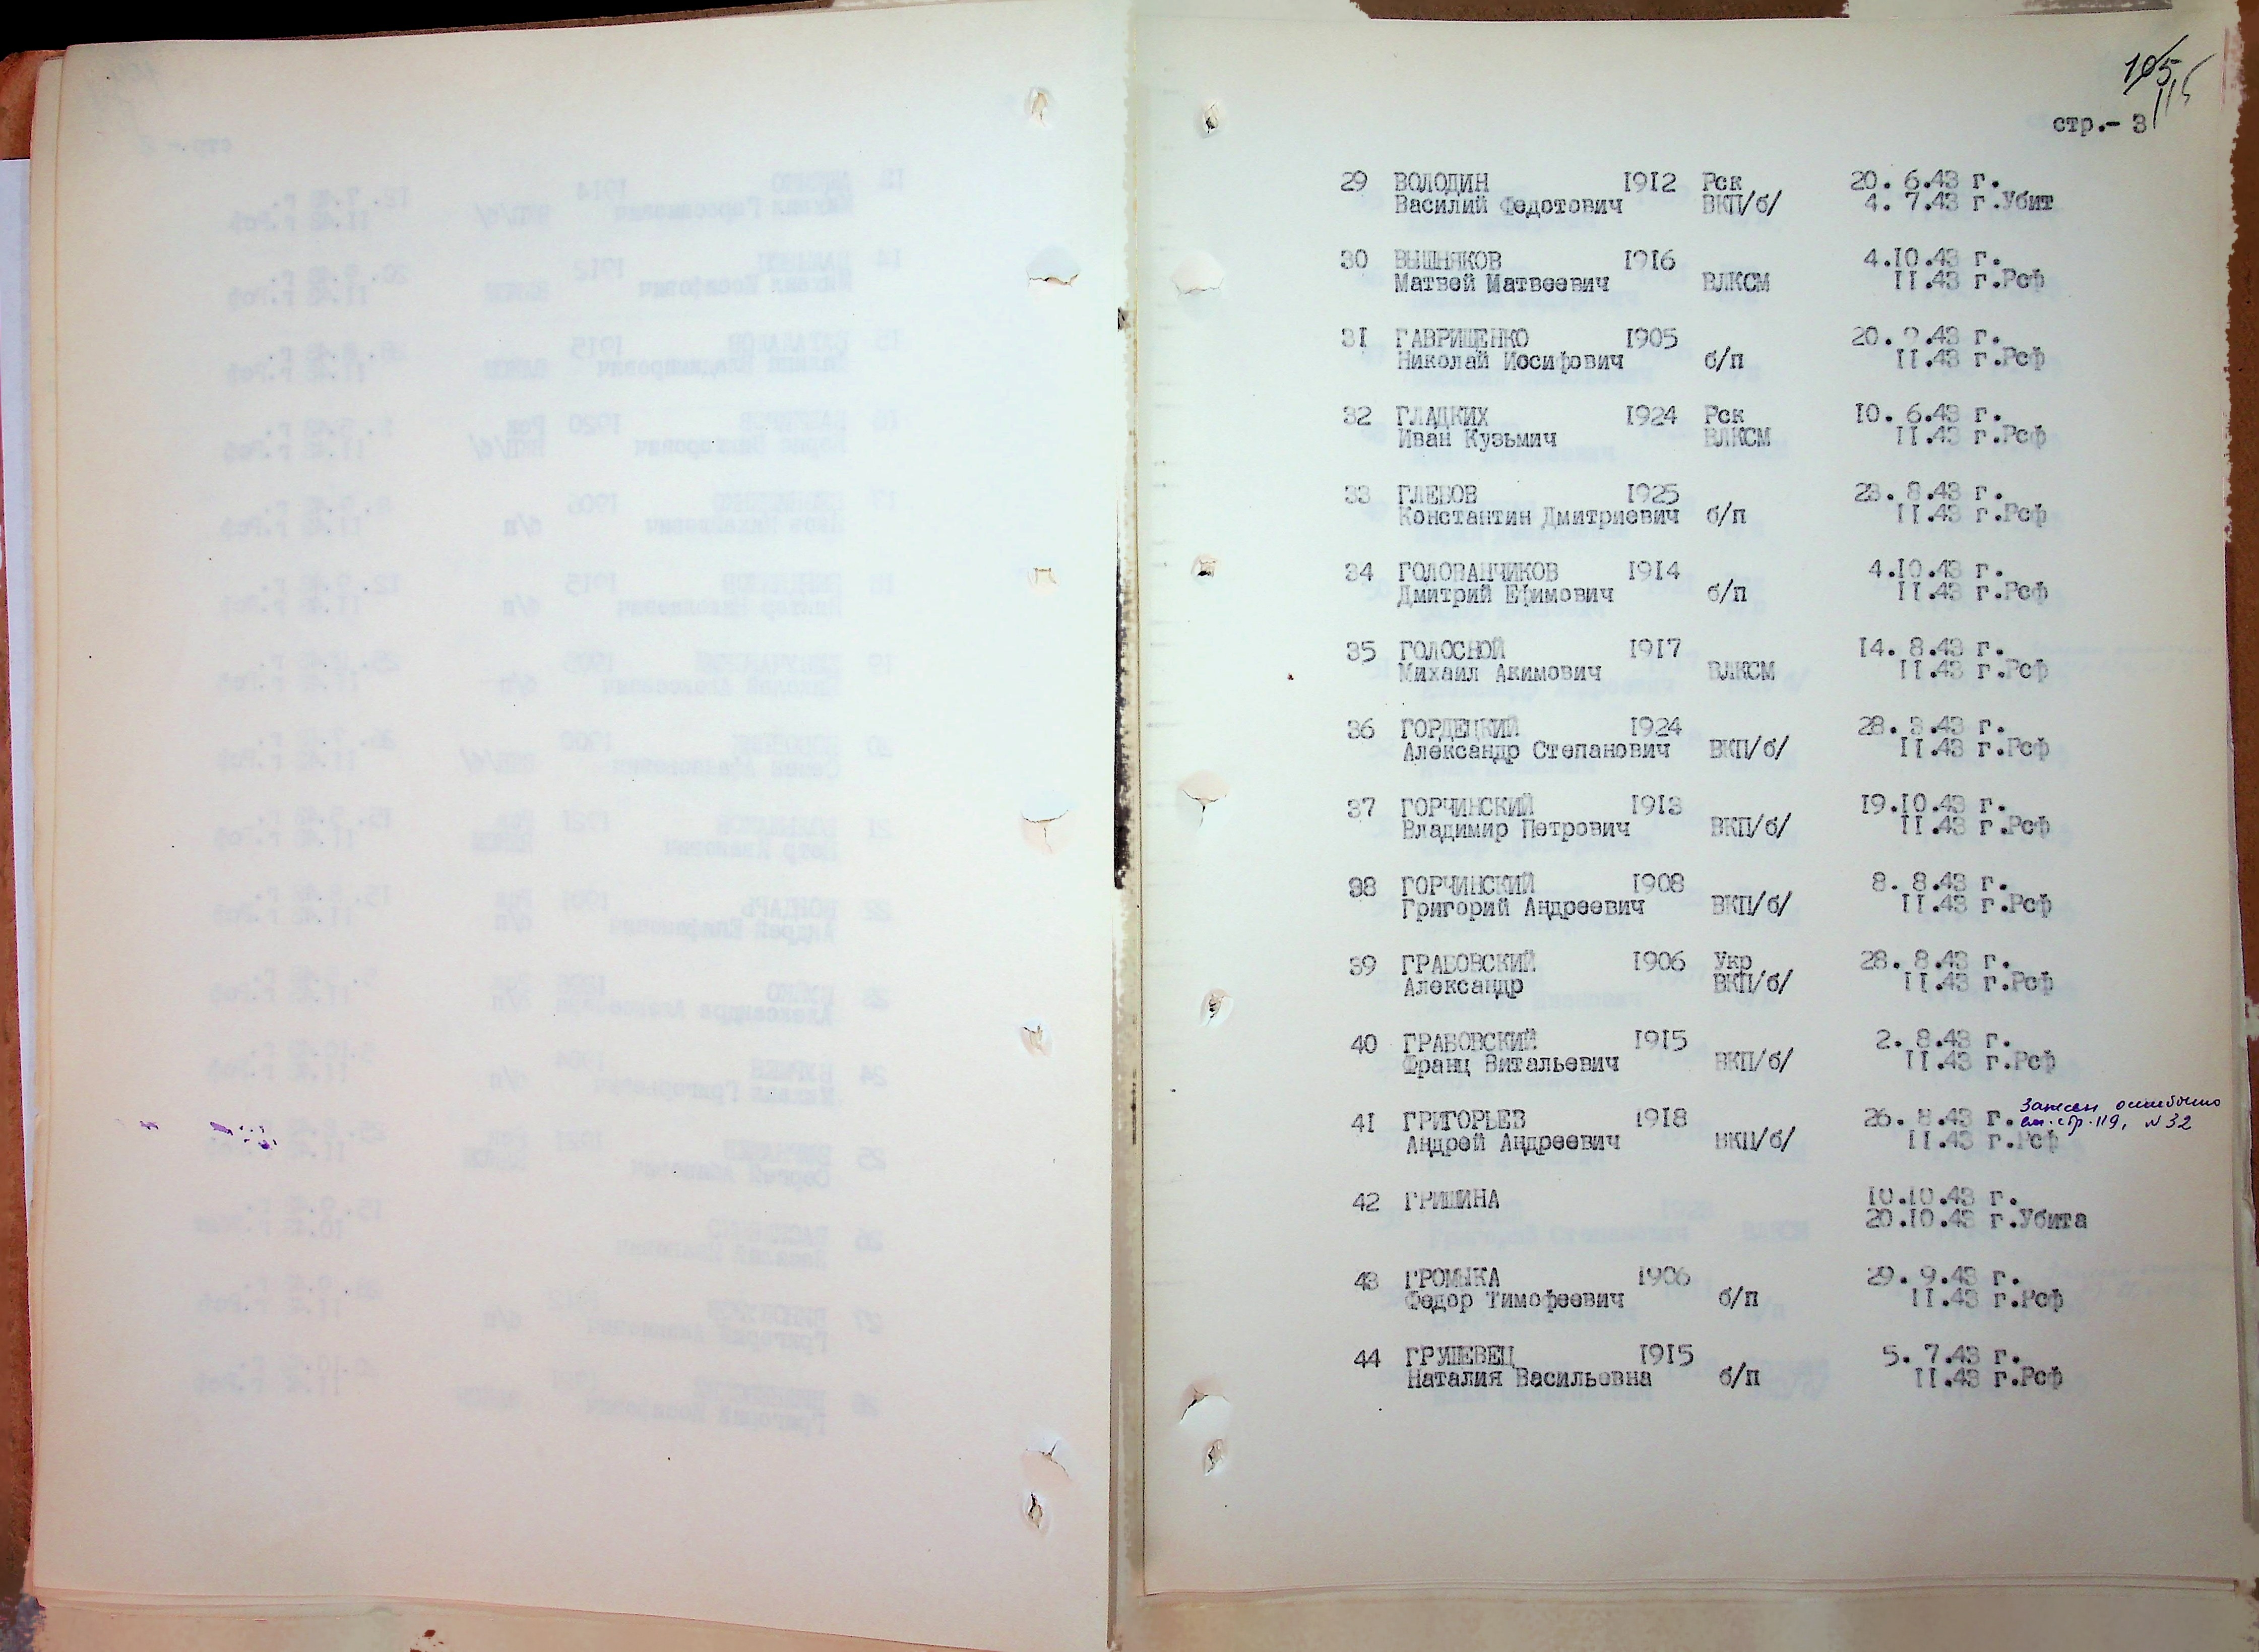 105
115
стр.- 3
29 ВОЛОДИН 1912 Рск 20. 6.43 г.
Василий Федотович ВКП/б/ 4. 7.43 г.Убит
30 ВЫШНЯКОВ 1916 4.10.43 г.
Матвей Матвеевич ВЛКСМ 11.43 г.Рсф
31 ГАВРИЩЕНКО 1905 20. 9.43 г.
Николай Иосифович б/п 11.43 г.Рсф
32 ГЛАДКИХ 1924 Рск 10. 6.43 г.
Иван Кузьмич ВЛКСМ 11.43 г.Рсф
33 ГЛЕБОВ 1925 23. 8.43 г.
Константин Дмитриевич б/п 11.43 г.Рсф
34 ГОЛОВАНЧИКОВ 1914 4.10.43 г.
Дмитрий Ефимович б/п 11.43 г.Рсф
35 ГОЛОСНОЙ 1917 14. 8.43 г.
Михаил Акимович ВЛКСМ 11.43 г.Рсф
36 ГОРДЕЦКИЙ 1924 28. 3.43 г.
Александр Степанович ВКП/б/ 11.43 г.Рсф
37 ГОРЧИНСКИЙ 1913 19.10.43 г.
Владимир Петрович ВКП/б/ 11.43 г.Рсф
38 ГОРЧИНСКИЙ 1908 8. 8.43 г.
Григорий Андреевич ВКП/б/ 11.43 г.Рсф
39 ГРАБОВСКИЙ 1906 Укр 28. 8.43 г.
Александр ВКП/б/ 11.43 г.Рсф
40 ГРАБОВСКИЙ 1915 2. 8.43 г.
Франц Витальевич ВКП/б/ 11.43 г.Рсф
41 ГРИГОРЬЕВ 1918 26. 8.43 г. Занесен ошибочно
см. стр. 119, №32
Андрей Андреевич ВКП/б/ 11.43 г.Рсф
42 ГРИШИНА 10.10.43 г.
20.10.43 г.Убита
43 ГРОМЫКА 1906 29. 9.43 г.
Федор Тимофеевич б/п 11.43 г.Рсф
44 ГРУШЕВЕЦ 1915 5. 7.43 г.
Наталия Васильевна б/п 11.43 г.Рсф